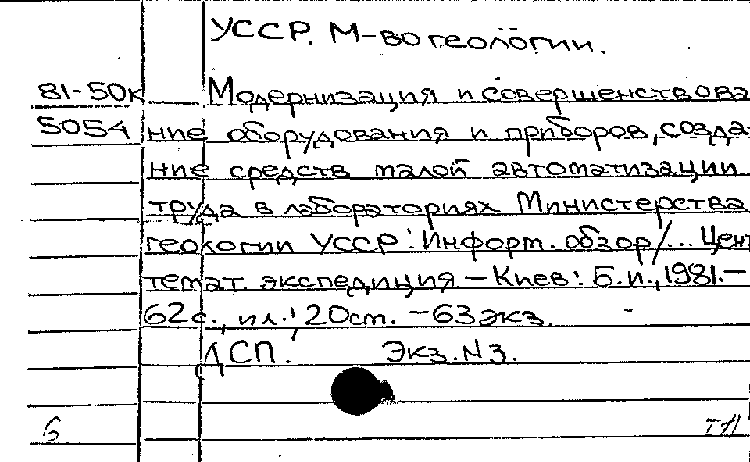 УССР. М-во геологии.
81-50к Модернизация и совершенствова
5054 ние оборудования и приборов, созда
ние средств малой автоматизации
труда в лабораториях Министерства
геологии УССР: Информ. обзор/... Цент
темат. экспедиция – Киев: Б.и., 1981. –
62с., ил.; 20 cm. – 63 экз.
ДСП. Экз. N3.